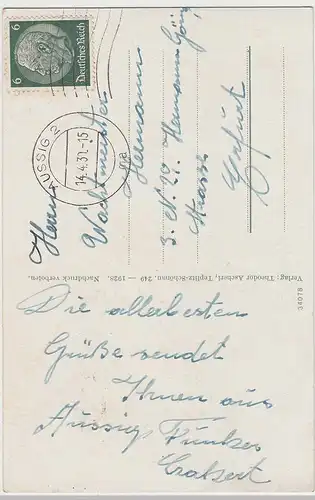 Deutsches Reich
6 6
AUSSIG 2
14.4.39.-15
Herrn
Wachtmeister
Hermann
3. N: 29. Hermann Göring
Strasse
Erfurt
Verlag: Theodor Aacheri, Teplitz-Schönau, 249 — 1928. Nachdruck verboten.
34078
Die allerbesten
Grüße sendet
Ihnen aus
Aussig